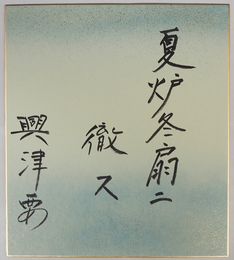 夏炉冬扇ニ
徹ス
興津要